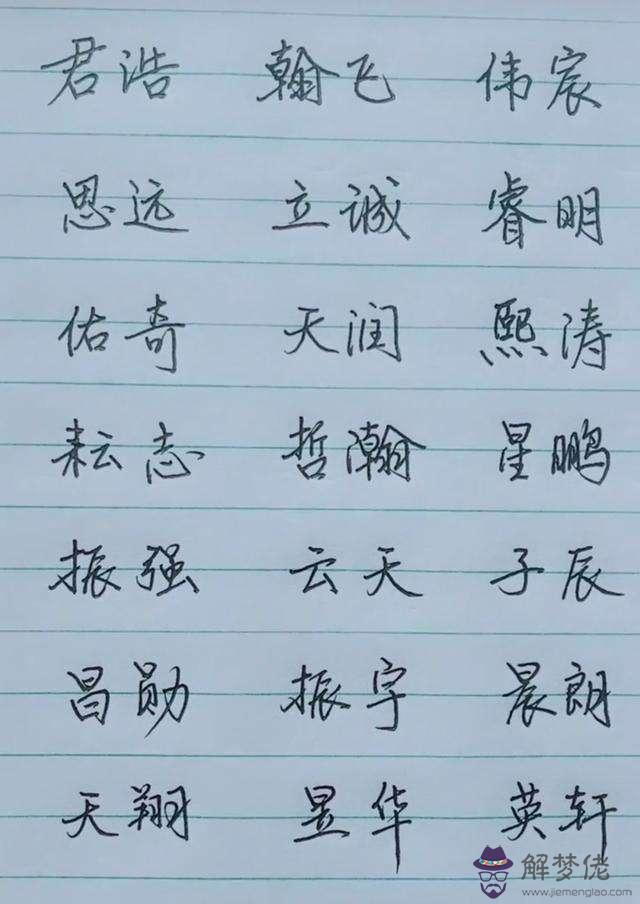 君浩 翰飞 伟宸
思远 立诚 睿明
佑奇 天润 熙涛
耘志 哲瀚 星鹏
振强 云天 子辰
昌勋 振宇 晨朗
天翔 昱华 英轩
解梦佬
www.jiemenglao.com